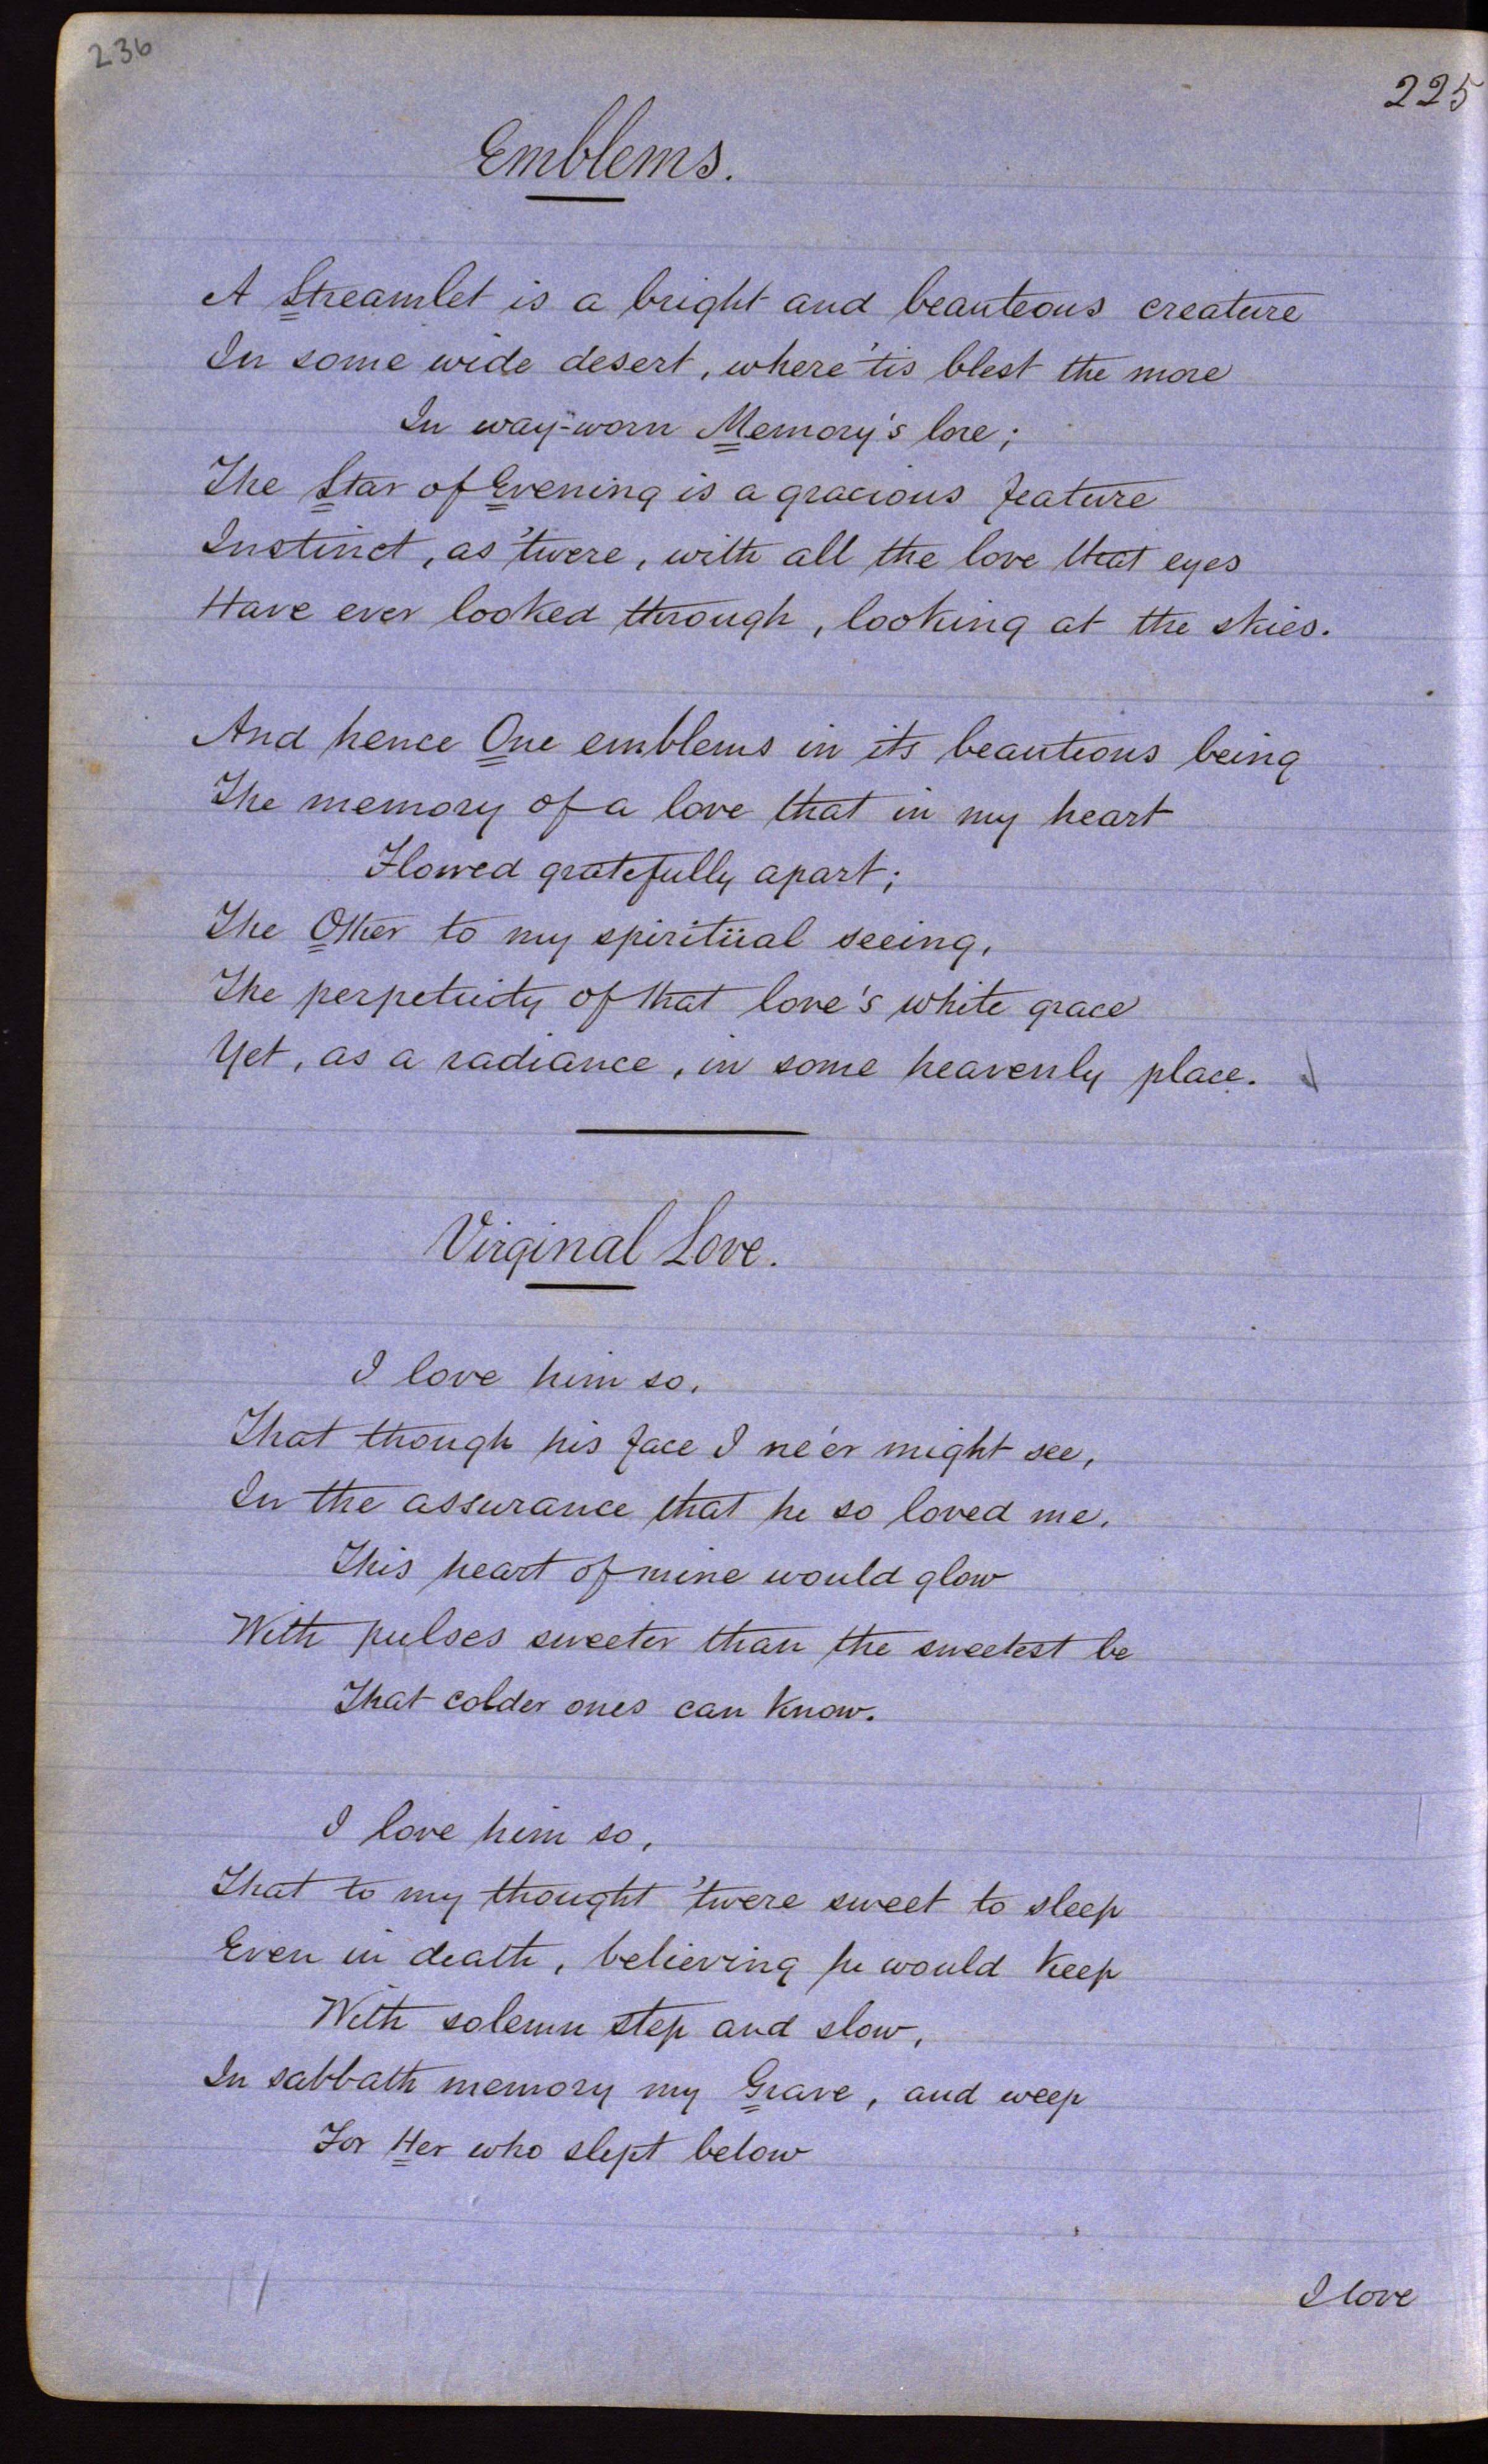 236
225
Emblems.
A Streamlet is a bright and beauteous creature
In some wide desert, where 'tis blest the more
In way-worn Memory's lore;
The Star of Evening is a gracious feature
Instinct, as 'twere, with all the love that eyes
Have ever looked through, looking at the skies.
And hence One emblems in its beauteous being
The memory of a love that in my heart
Flowed gratefully apart;
The Other to my spiritüal seeing,
The perpetuity of that love's white grace
Yet, as a radiance, in some heavenly place.
Virginal Love.
I love him so,
That though his face I ne'er might see,
In the assurance that he so loved me,
This heart of mine would glow
With pulses sweeter than the sweetest be
That colder ones can know.
I love him so,
That to my thought 'twere sweet to sleep
Even in death, believing he would keep
With solemn step and slow,
In sabbath memory my Grave, and weep
For Her who slept below
I love